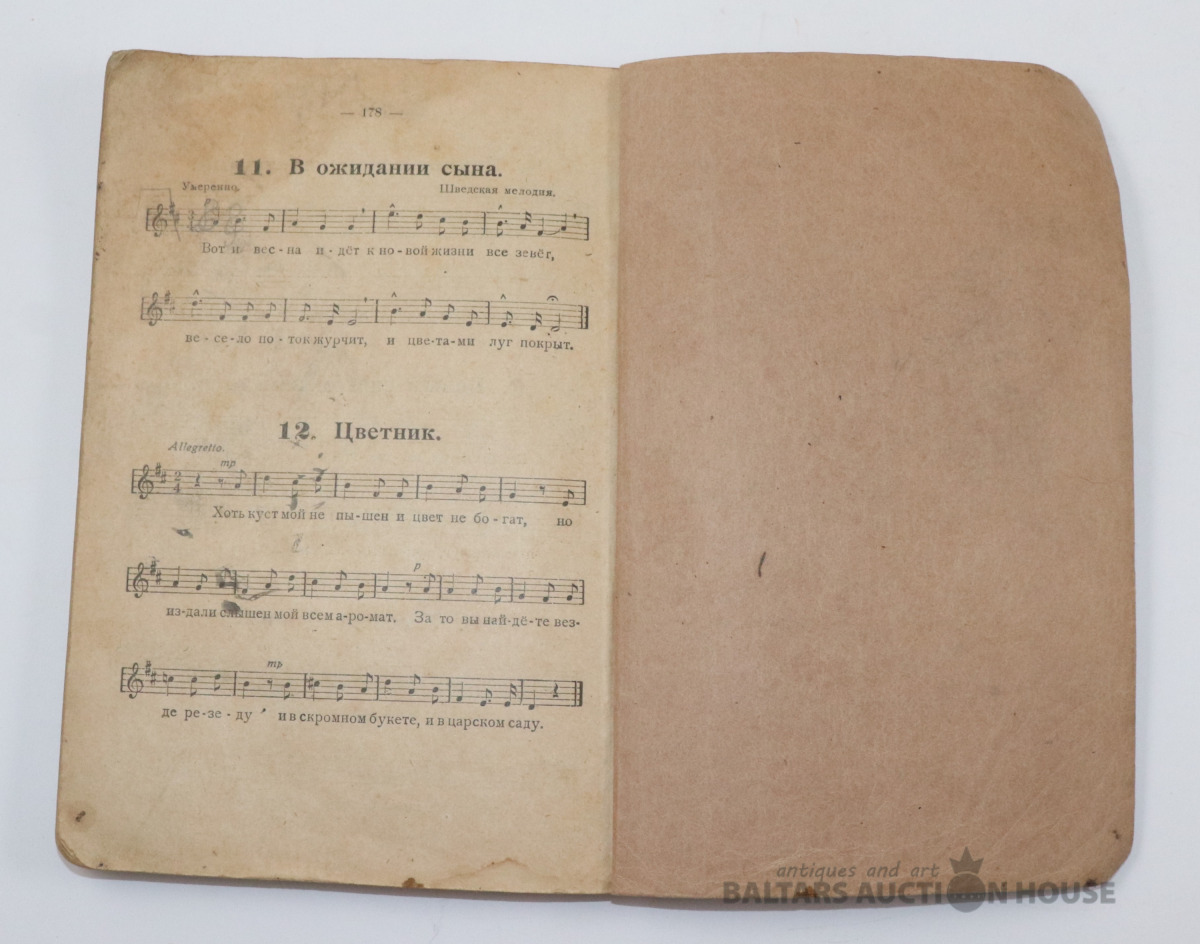 — 178 —
11. В ожидании сына.
Умеренно. Шведская мелодия.
Вот и вес-на и-дёт к но-вой жизни все зовёт,
ве-се-ло по-ток журчит, и цве-та-ми луг покрыт.
12. Цветник.
Allegretto.
mp
Хоть куст мой не пы-шен и цвет не бо-гат, но
p
из-дали слышен мой всем а-ро-мат. За то вы най-дё-те вез-
mp
де ре-зе-ду и в скромном букете, и в царском саду.
antiques and art
BALTARS AUCTION HOUSE